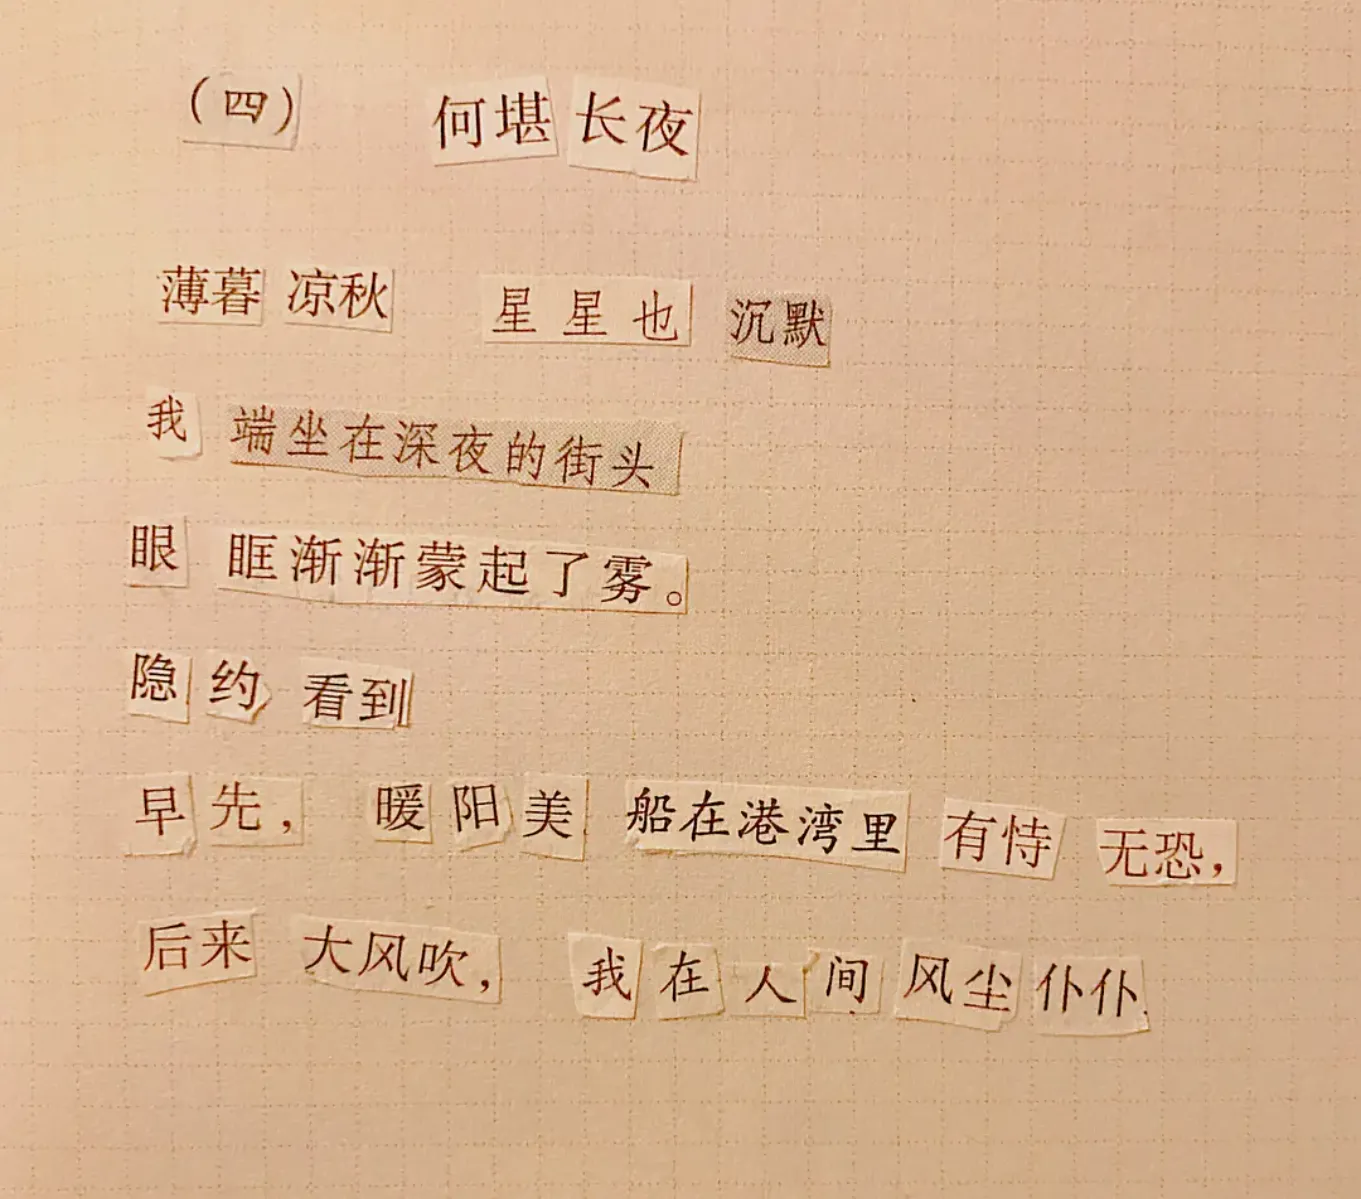 （四） 何堪长夜
薄暮凉秋 星星也 沉默
我 端坐在深夜的街头
眼 眶渐渐蒙起了雾。
隐约 看到
早先， 暖阳美 船在港湾里 有恃 无恐，
后来 大风吹， 我在人间风尘仆仆